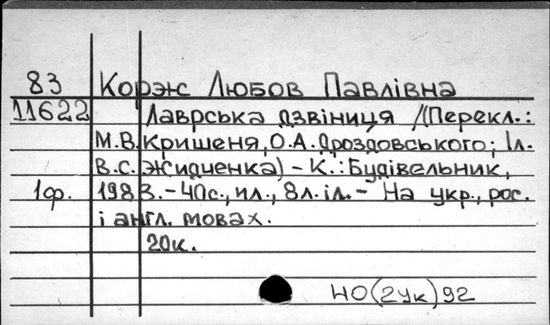 83 Корэж Любов Павлівна
11622 Лаврська дзвіниця /(Перекл.:
М.В.Кришеня, О.А.Дроздовського; Іл.
В.С.Жидченка) - К.: Будівельник,
1ф. 1983. - 40с., ил., 8л. іл. - На укр., рос.
і англ. мовах.
20к.
НО(2Ук)92